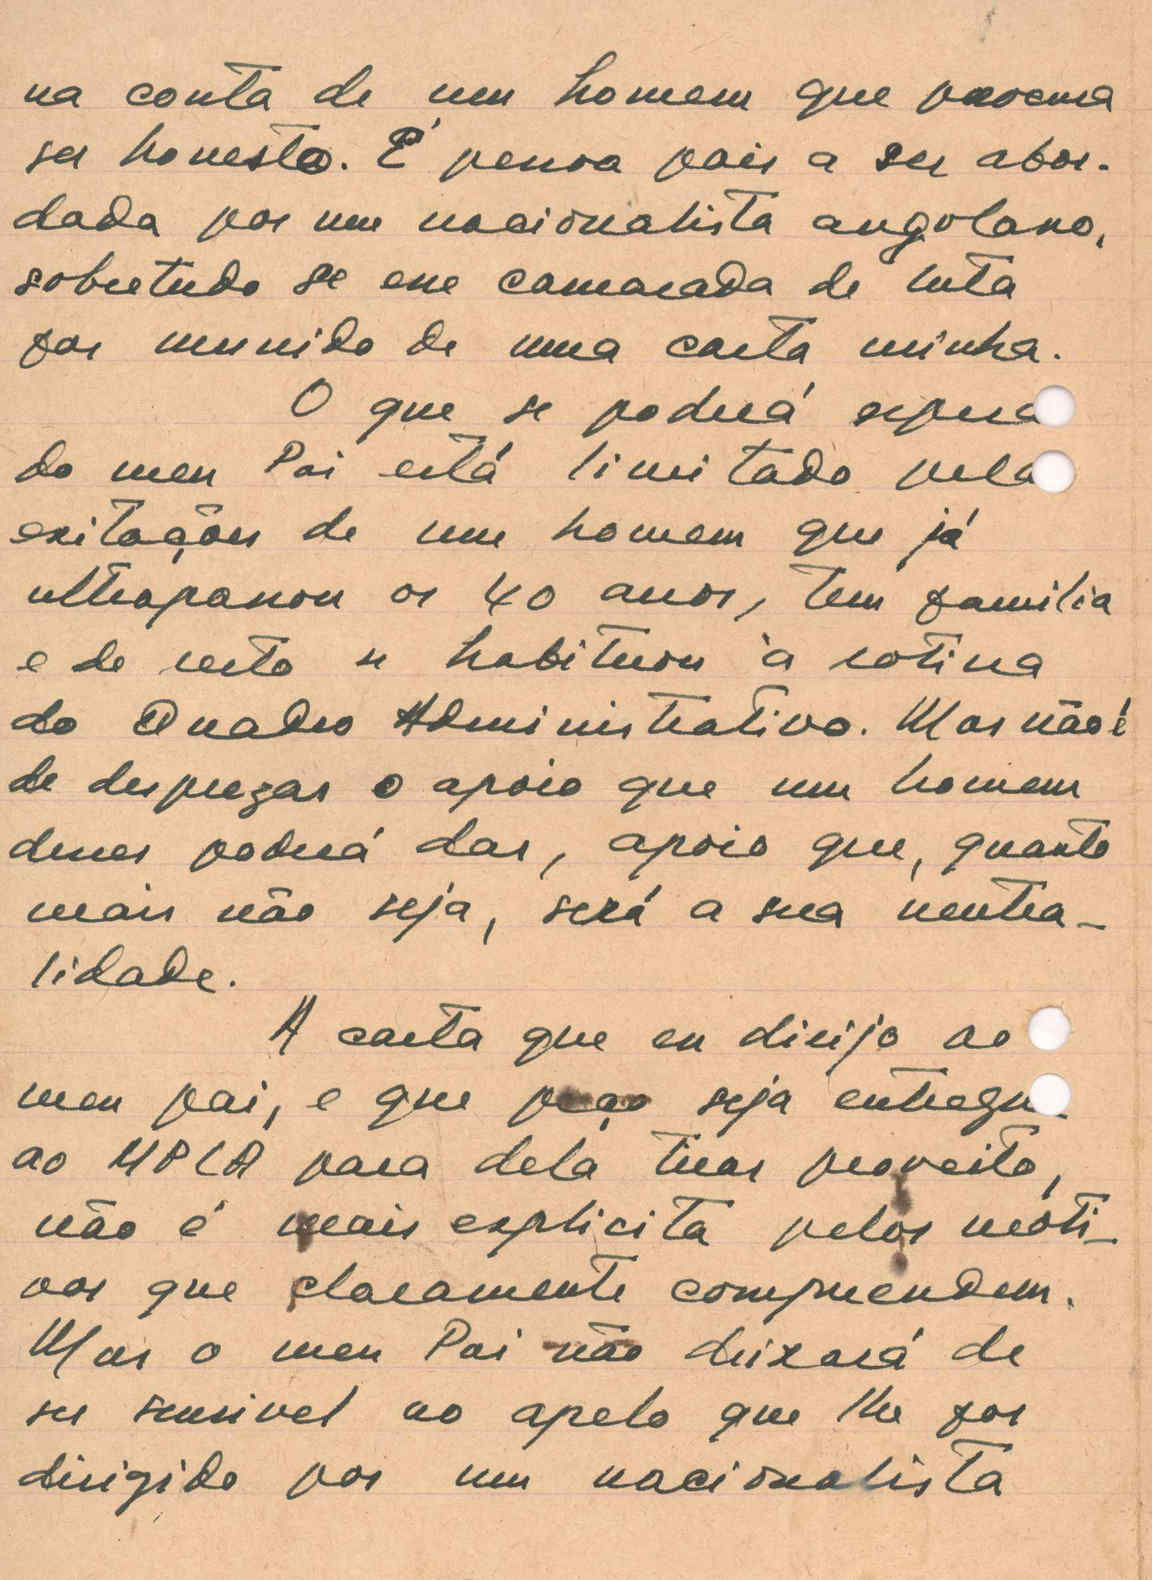 na conta de um homem que procura
ser honesto. É pessoa pois a ser abor-
dada por um nacionalista angolano,
sobretudo se esse camarada de luta
for munido de uma carta minha.
O que se poderá espera
do meu Pai está limitado pela
exitações de um homem que já
ultrapassou os 40 anos, tem família
e de resto se habituou à rotina
do Quadro Administrativo. Mas não é
de desprezar o apoio que um homem
desses poderá dar, apoio que, quanto
mais não seja, será a sua neutra-
lidade.
A carta que eu dirijo ao
meu pai, e que peço seja entregu
ao MPLA para dela tirar proveito,
não é mais explicita pelos moti-
vos que claramente compreendem.
Mas o meu Pai não deixará de
ser sensivel ao apelo que lhe for
dirigido por um nacionalista